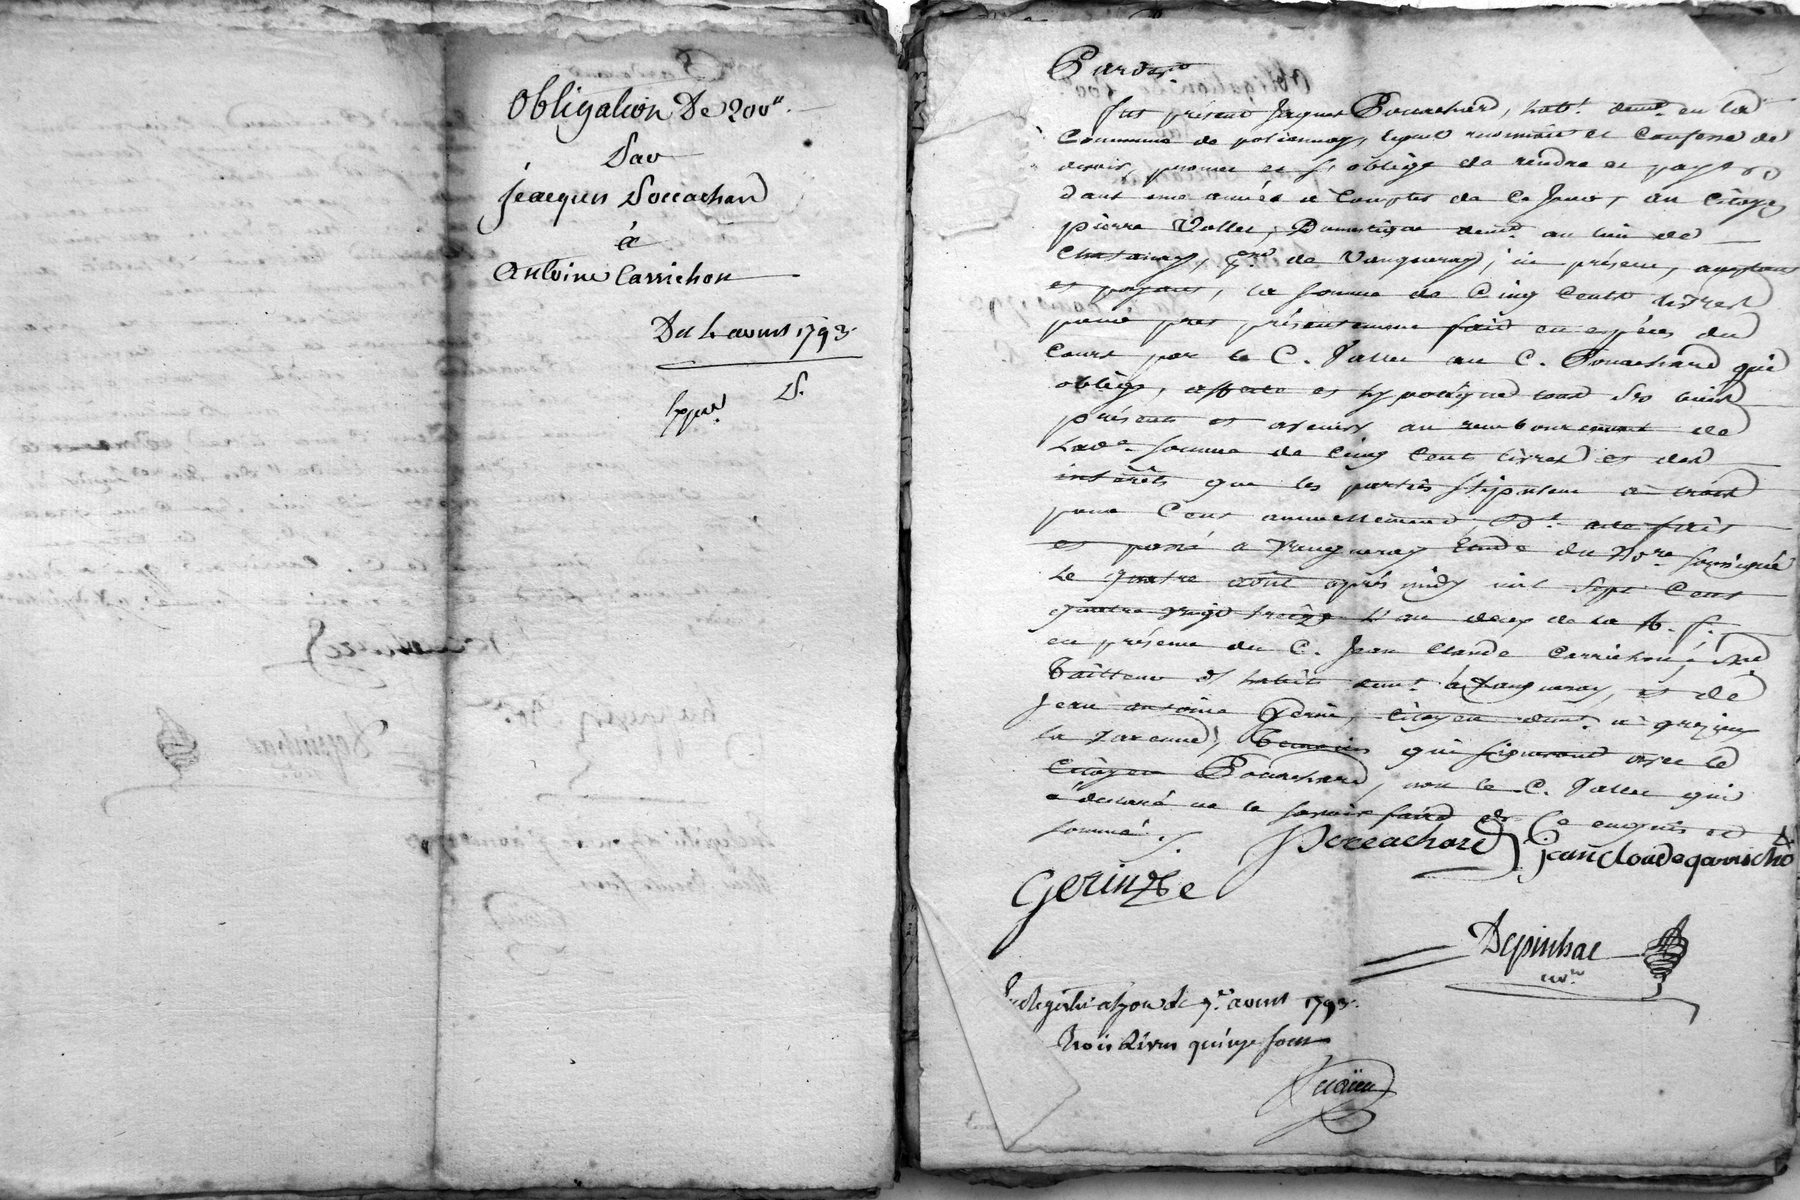 Obligation De 200ᵗᵗ
Par
Jacques Poccachard
à
Antoine Carrichon
Du 4 aoust 1793
Expéé
P.
Pardev.
fut présent Jaques Pocachard, habt. demt. en la
Commune de polionnay, lequel reconnoit et Confesse de
devoir, promet et s'oblige de rendre et payer
dans une année à Compter de Ce jour, au Citoyen
pierre Vallet, Domestique demt. au lieu de
Chatanay, de Vaugneray, ici présent,
la somme de Cinq Cents Livres
pour pret présentement fait en espèces du
Cours par le C. Vallet au C. Pocachard qui
oblige, affecte et hypotèque tous ses biens
présents et avenirs au remboursement de
lade. somme de Cinq Cents livres et des
intérêts que les parties stipulent à trois
pour Cent annuellement, fait
et passé à Vaugneray Etude du Nore. soussigné
le quatre août après midy mil sept Cent
quatre vingt treize l'an deux de la R. f.
en présence du C. Jean Claude Carrichon,
Tailleur d'habits demt. à Vaugneray, et de
Jean antoine Gerin, Citoyen demt. à grezieu
la Varenne, Temoins qui signeront avec le
Citoyen Pocachard, non le C. Vallet qui
a declaré ne le savoir faire de Ce enquis et
sommé ./.
Poccachard Jean Cloude qarricho
Gerin
Depinhac
nore.
Enregistré à le 7. aoust 1793.
trois Livres quinze sous